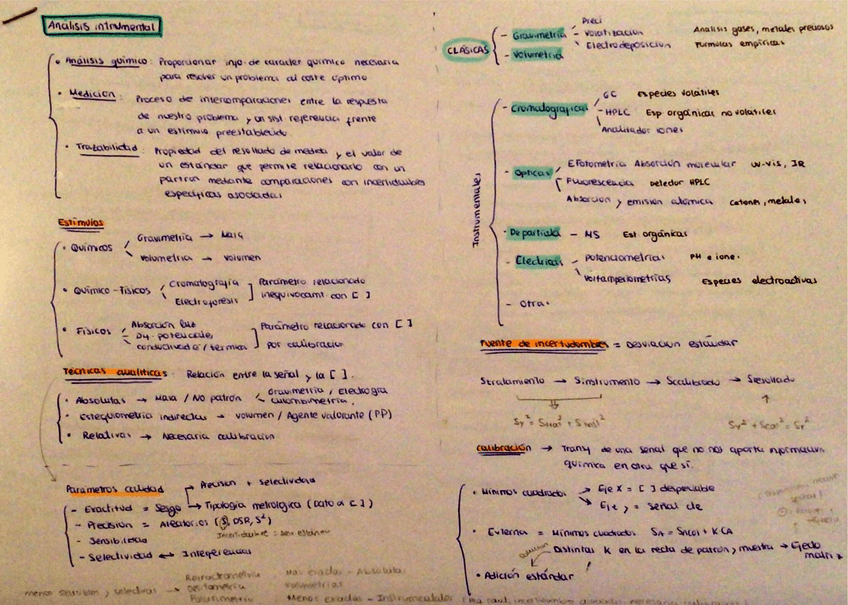 Análisis intrumental
• Análisis químico: Proporcionar info. de caracter químico necesaria
para resolver un problema al coste óptimo
• Medición: Proceso de intercomparaciones entre la respuesta
de nuestro problema y un sist referencia frente
a un estímulo preestablecido.
• Trazabilidad: Propiedad del resultado de medida y el valor de
un estándar que permite relacionarlo con un
patrón mediante comparaciones con incertidumbres
específicas asociadas
Estímulos
• Químicos
Gravimetría → Masa
Volumetría → Volumen
• Químico-Físicos
Cromatografía
Electroforesis
Parámetro relacionado
inequivocamt con [ ]
• Físicos
Absorción luz
Dif. potenciales
conductividad/térmica
Parámetro relacionado con [ ]
por calibración
Técnicas analíticas: Relación entre la señal y la [ ].
• Absolutas → Masa / No patrón
Gravimetría / Electrogra
culombimetría.
• Estequiometría indirectas → volumen / Agente valorante (PP)
• Relativas → Necesaria calibración
Parámetros calidad
→ Precisión + selectividad
- Exactitud = Sesgo → Tipología metrológica (Dato a [ ])
- Precisión = Aleatorios (S, DSR, S²)
Incertidumbre: Desv estándar
- Sensibilidad
- Selectividad ↔ Interferencias
menos sensibles y selectivas →
Refractometría
Densitometría
Polarimetría
Mas exactas - Absolutas
Volumetrías
Menos exactas - Instrumentales
CLÁSICAS
- Gravimetría
Preci
Volatilización
Electrodeposición
- Volumetría
Analisis gases, metales preciosos
Formulas empíricas
Instrumentales
- Cromatográficas
GC Especies volátiles
HPLC Esp orgánicas no volátiles
Analizador iones
- Opticas
EFotometría Absorción molecular UV-Vis, IR
Fluorescencia Detector HPLC
Absorción y emisión atómica Cationes, metales
- De partícula - MS Est orgánicas
- Electricas
Potenciometrías PH e iones.
Voltamperiometrías Especies electroactivas
- Otras
Fuente de incertidumbres = Desviación estándar
Stratamiento → Sinstrumento → Scalibrado → Sresultado
Sy² + Scal² = Sr²
calibración → Transf de una señal que no nos aporta información
química en otra que sí.
• Mínimos cuadrados
Eje X = [ ] despreciable
Eje y = señal de
• Externa = Mínimos cuadrados
Distintas K en la recta de patrón y muestra → Efecto
matriz
• Adición estándar